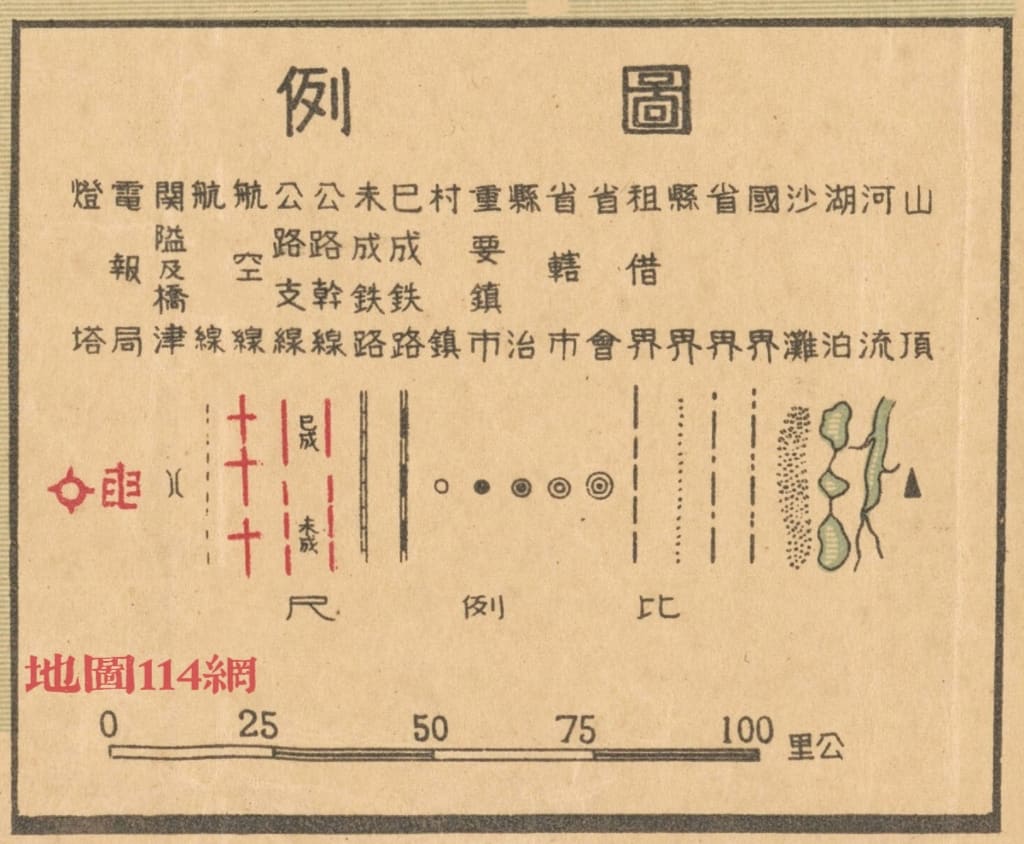 圖例
山頂
河流
湖泊
沙灘
國界
省界
縣界
租借界
省會
省轄市
縣治
重要鎮市
村鎮
巳成鉄路
未成鉄路
公路幹線
公路支線
航空線
航線
関隘及橋津
電報局
燈塔
巳成
未成
比例尺
地圖114網
0 25 50 75 100 公里